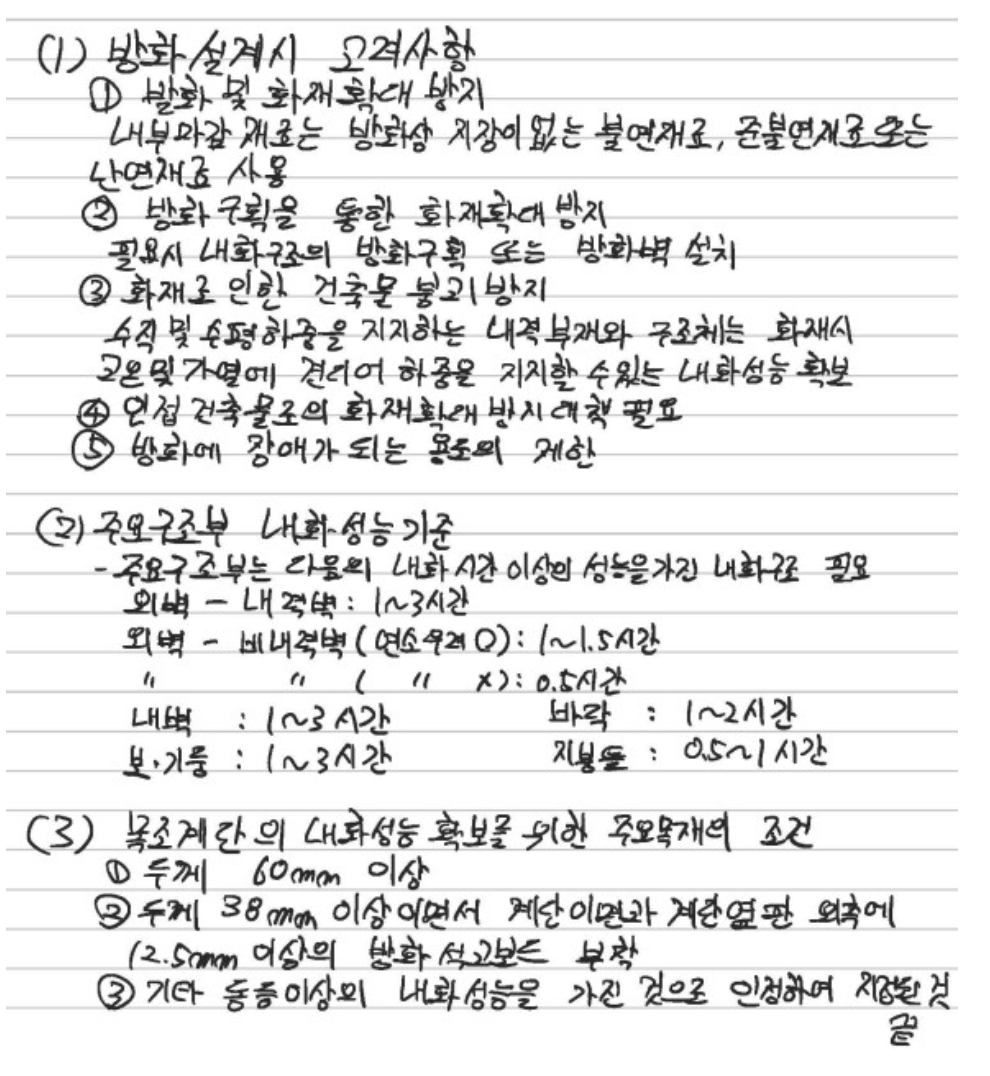 (1) 방화설계시 고려사항
① 발화 및 화재확대 방지
내부마감 재료는 방화상 지장이 없는 불연재료, 준불연재료 또는
난연재료 사용
② 방화구획을 통한 화재확대 방지
필요시 내화구조의 방화구획 또는 방화벽 설치
③ 화재로 인한 건축물 붕괴 방지
수직 및 수평하중을 지지하는 내력부재와 구조체는 화재시
고온 및 가열에 견디어 하중을 지지할 수 있는 내화성능 확보
④ 인접 건축물로의 화재확대 방지대책 필요
⑤ 방화에 장애가 되는 용도의 제한
(2) 주요구조부 내화성능기준
- 주요구조부는 다음의 내화시간 이상의 성능을 가진 내화구조 필요
외벽 - 내력벽 : 1~3시간
외벽 - 비내력벽 (연소우려 O) : 1~1.5시간
〃 〃 ( 〃 X) : 0.5시간
내벽 : 1~3시간 바닥 : 1~2시간
보·기둥 : 1~3시간 지붕틀 : 0.5~1시간
(3) 목조계단의 내화성능 확보를 위한 주요목재의 조건
① 두께 60mm 이상
② 두께 38mm 이상이면서 계단이면과 계단옆판 외측에
12.5mm 이상의 방화석고보드 부착
③ 기타 동등이상의 내화성능을 가진 것으로 인정하여 지정된 것
끝